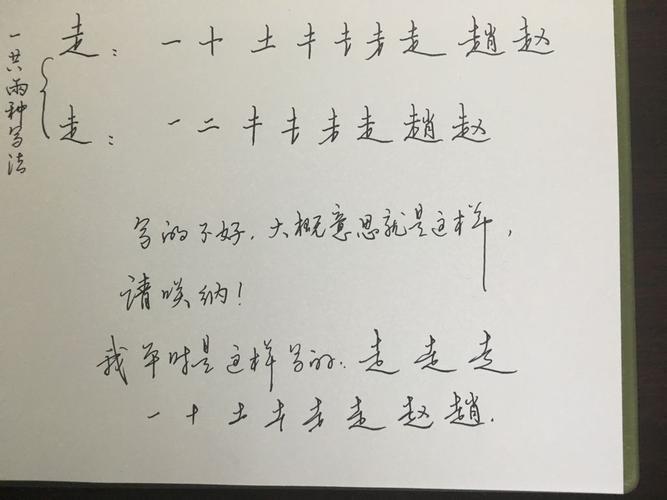 一共两种写法
走：一十土 走 趙赵
走：一二 走趙赵
写的不好，大概意思就是这样，
请笑纳！
我平时是这样写的：走走走
一十土 走赵趙.